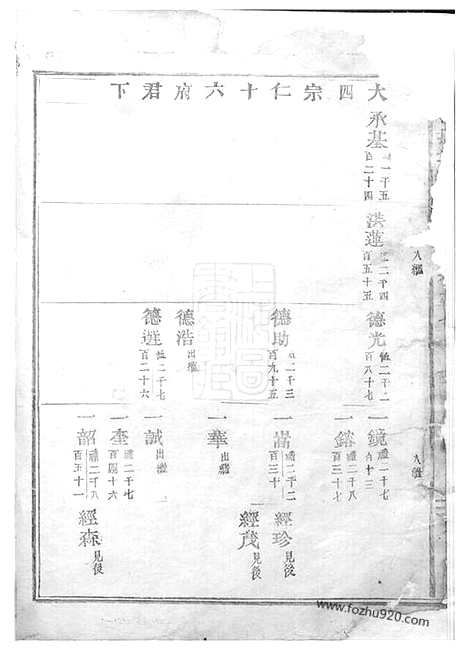 大四宗仁十六府君下
承基
一千五
百二十四
洪蓮
二千四
百五十五
德光
二千二
百八十七
德助
二千三
百九十五
德浩
出繼
德遊
二千七
百二十六
一鏡
一千七
十三
一鎔
二千八
百五十
一嵩
二千二
百三十
一華
出繼
一誠
出繼
一奎
二千七
百四十六
一韶
二千八
百五十一
經珍
見後
經茂
見後
經森
見後
入繼
入繼
www.fozhu920.com